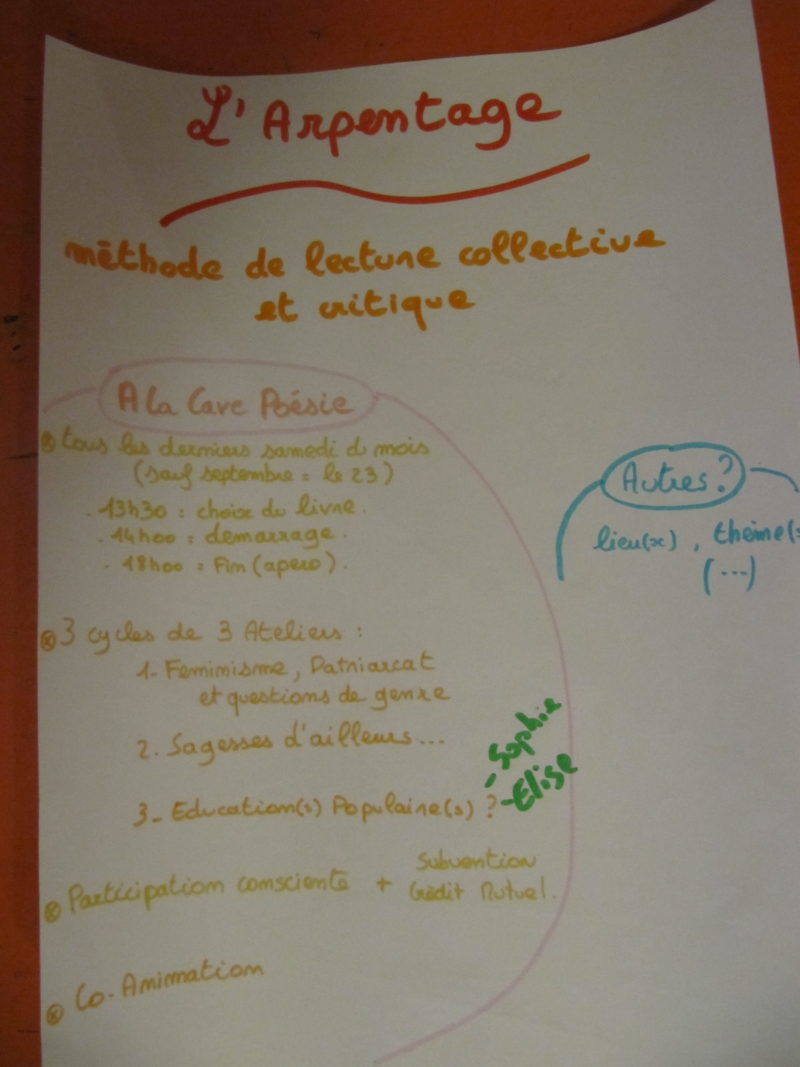 L'Arpentage
méthode de lecture collective
et critique
A La Cave Poésie
tous les derniers samedi d mois
(sauf septembre : le 23)
- 13h30 : choix du livre.
- 14h00 : demarrage.
- 18h00 : Fin (apero).
3 cycles de 3 Ateliers :
1- Feminisme, Patriarcat
et questions de genre
2. Sagesses d'ailleurs...
3- Education(s) Populaire(s) ?
- Sophie
- Elise
Participation consciente + Subvention
Crédit Mutuel.
Co-Animation
Autres ?
lieu(x), thème(s
(...)